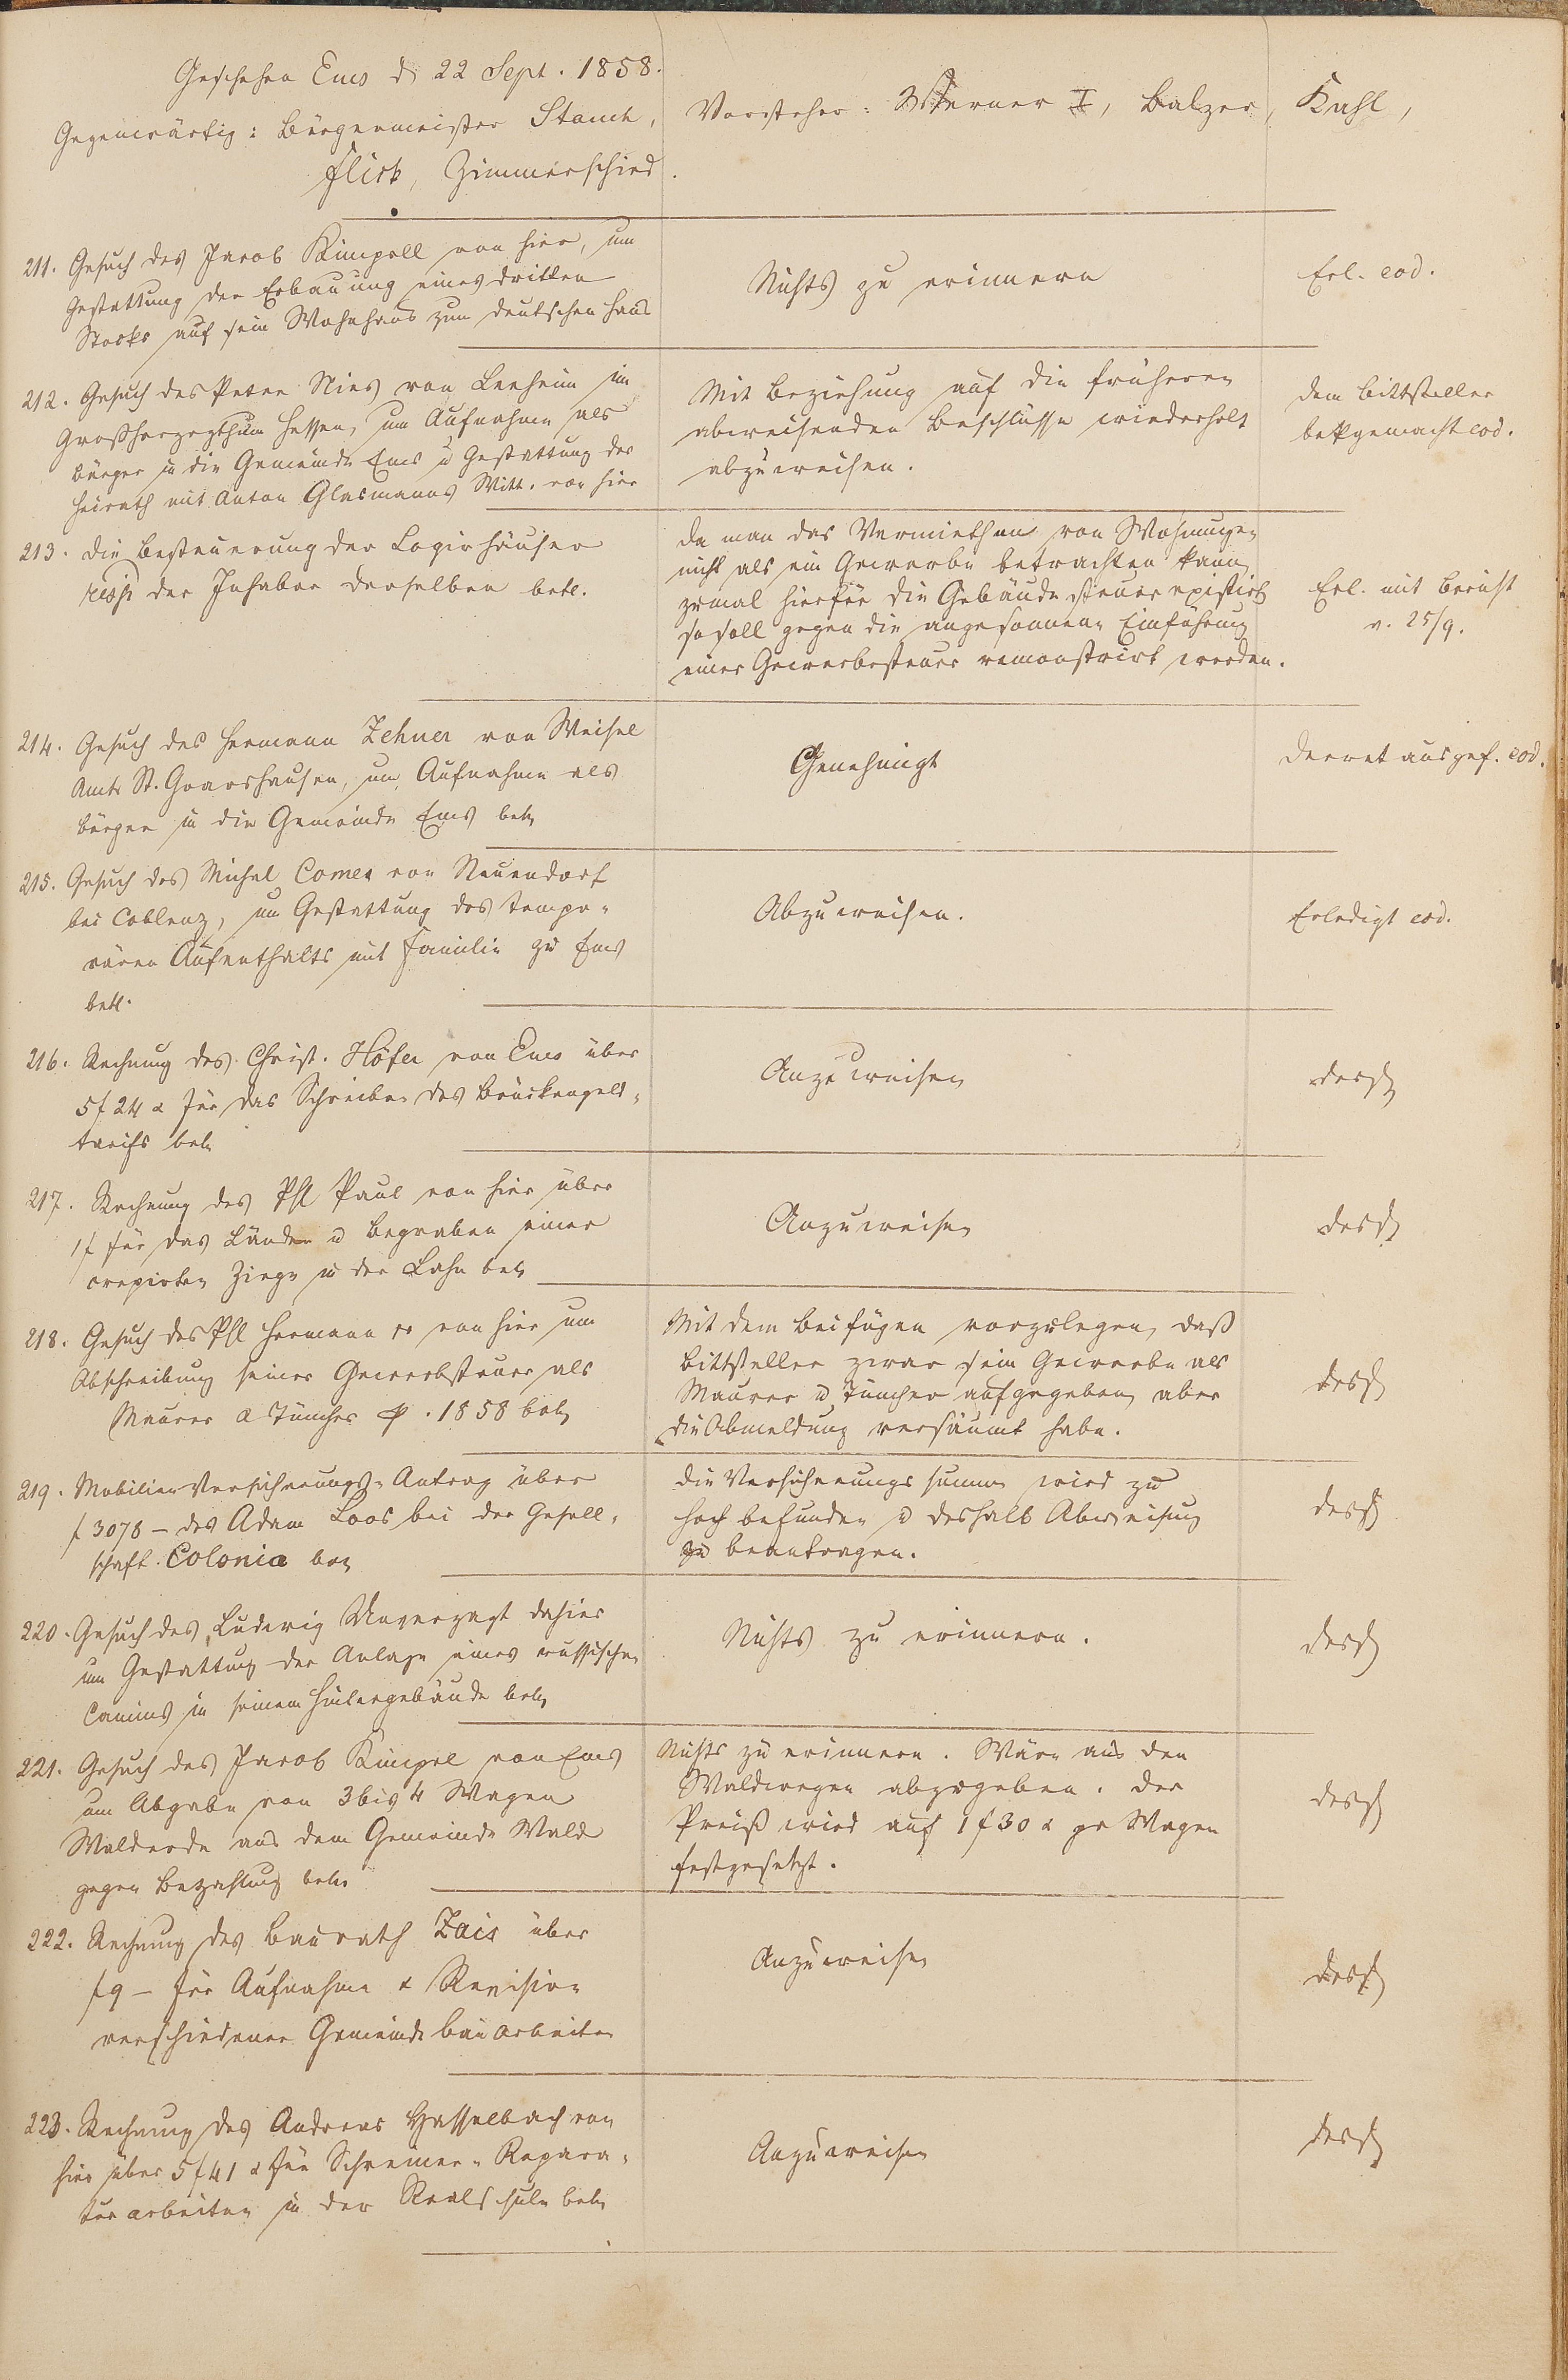 Geschehen Ems d 22 Sept. 1858.
Gegenwärtig: Bürgermeister Stauch,
Vorsteher: Werner I, Balzer, Kahl,
Flick, Zimmerschied.
211. Gesuch des Jacob Kimpell von hier, um
Gestattung der Erbauung eines dritten
Stocks auf sein Wohnhaus zum deutschen Haus
Nichts zu erinnern
Erl. eod.
212. Gesuch des Peter Nies von Leeheim im
Großherzogthum Hessen, um Aufnahme als
Bürger in die Gemeinde Ems u Gestattung der
Heirath mit Anton Glasmanns Witt. von hier
Mit Beziehung auf die früheren
abweisenden Beschlüsse wiederholt
abzuweisen.
dem Bittsteller
bekgemacht eod.
213. Die Besteuerung der Logirhäuser
resp der Inhaber derselben betr.
Da man das Vermiethen von Wohnungen
nicht als ein Gewerbe betrachten kann,
zumal hierfür die Gebäudesteuer existirt
so soll gegen die angesonnene Einführung
einer Gewerbesteuer remonstrirt werden.
Erl. mit Bericht
v. 25/9.
214. Gesuch des Hermann Zehner von Weisel
Amts St. Goarshausen, um Aufnahme als
Bürger in die Gemeinde Ems betr
Genehmigt
Decret ausgef. eod.
215. Gesuch des Michel Comes von Neuendorf
bei Coblenz, um Gestattung des tempo-
rären Aufenthalts mit Familie zu Ems
betr.
Abzuweisen.
Erledigt eod.
216. Rechnung des Christ. Höfer von Ems über
5 f 24 x für das Schreiben des Brückengeld-
tarifs betr
Anzuweisen
desgl
217. Rechnung des Phl Paul von hier über
1 f für das Länden u Begraben einer
crepirten Ziege in der Lahn betr
Anzuweisen
desgl
218. Gesuch des Phl Hermann von hier um
Abschreibung seiner Gewerbsteuer als
Maurer & Tüncher p. 1858 betr
Mit dem Beifügen vorzulegen, daß
Bittsteller zwar sein Gewerbe als
Maurer u Tüncher aufgegeben, aber
die Abmeldung versäumt habe.
desgl
219. Mobilien-Versicherungs-Antrag über
f 3078 – des Adam Loos bei der Gesell-
schaft Colonia betr
Die Versicherungssumme wird zu
hoch befunden u deshalb Abweisung
zu beantragen.
desgl
220. Gesuch des Ludwig Unverzagt dahier
um Gestattung der Anlage eines russischen
Camins in seinem Hintergebäude betr
Nichts zu erinnern.
desgl
221. Gesuch des Jacob Kimpel von Ems
um Abgabe von 3 bis 4 Wagen
Walderde aus dem Gemeinde Wald
gegen Bezahlung betr
Nichts zu erinnern. Wäre aus den
Waldwegen abzugeben. Der
Preiß wird auf 1 f 30 x pr Wagen
festgesetzt.
desgl
222. Rechnung des Baurath Zais über
f 9 – für Aufnahme & Revision
verschiedener Gemeindebauarbeiten
Anzuweisen
desgl
223. Rechnung des Andreas Hasselbach von
hier über 5 f 41 x für Schreiner-Repara-
turarbeiten in der Realschule betr
Anzuweisen
desgl